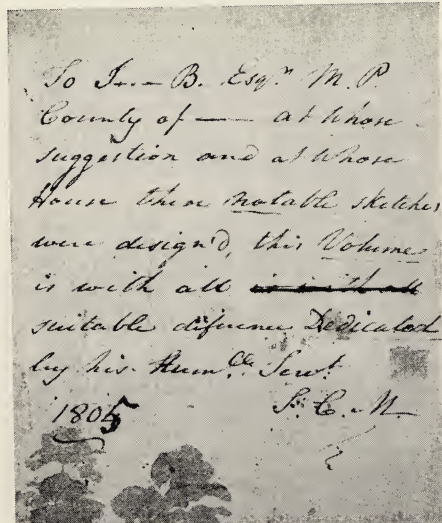 To J--- B. Esqr. M. P.
County of —— at Whose
suggestion and at Whose
House these notable sketches
were design'd, this Volume
is with all is with all
suitable diference Dedicated
by his Humble. Servt.
1805 S. C. M.